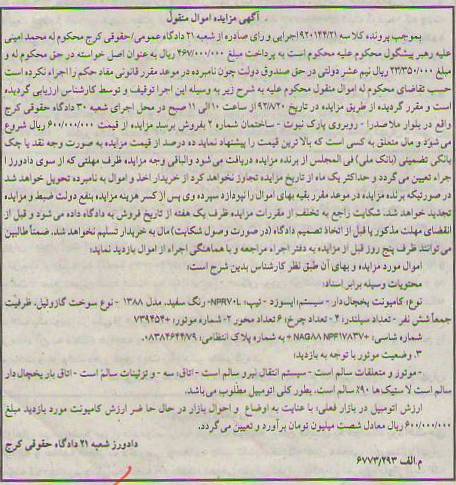 آگهی مزایده اموال منقول
بموجب پرونده کلاسه ۹۲۰۱۴۴/۲۱ اجرایی و رای صادره از شعبه ۲۱ دادگاه عمومی/حقوقی کرج محکوم له محمد امینی
علیه رهبر پیشگول محکوم علیه محکوم است به پرداخت مبلغ ۴۶۷/۰۰۰/۰۰۰ ریال به عنوان اصل خواسته در حق محکوم له و
مبلغ ۲۳/۳۵۰/۰۰۰ ریال نیم عشر دولتی در حق صندوق دولت چون نامبرده در موعد مقرر قانونی مفاد حکم را اجراء نکرده است
حسب تقاضای محکوم له اموال منقول محکوم علیه به شرح زیر به وسیله این اجرا توقیف و توسط کارشناس ارزیابی گردیده
است و مقرر گردیده از طریق مزایده در تاریخ ۹۲/۸/۲۰ از ساعت ۱۰ الی ۱۱ صبح در محل اجرای شعبه ۳۰ دادگاه حقوقی کرج
واقع در بلوار ملاصدرا - روبروی پارک نبوت - ساختمان شماره ۲ بفروش برسد مزایده از قیمت ۶۰۰/۰۰۰/۰۰۰ ریال شروع
می‌شود و مال متعلق به کسی است که بالاترین قیمت را پیشنهاد نماید ده درصد از قیمت مزایده به صورت وجه نقد یا چک
بانکی تضمینی (بانک ملی) فی المجلس از برنده مزایده دریافت می شود والباقی وجه مزایده ظرف مهلتی که از سوی دادورز ا
جراء تعیین می گردد و حداکثر یک ماه از تاریخ مزایده تجاوز نخواهد کرد از خریدار اخذ و اموال به نامبرده تحویل خواهد شد
در صورتیکه برنده مزایده در موعد مقرر بقیه بهای اموال را نپردازد سپرده وی پس از کسر هزینه مزایده بنفع دولت ضبط و مزایده
تجدید خواهد شد. شکایت راجع به تخلف از مقررات مزایده ظرف یک هفته از تاریخ فروش به دادگاه داده می شود و قبل از
انقضای مهلت مذکور یا قبل از اتخاذ تصمیم دادگاه (در صورت وصول شکایت) مال به خریدار تسلیم نخواهد شد. ضمناً طالبین
می توانند ظرف پنج روز قبل از مزایده به دفتر اجراء مراجعه و با هماهنگی اجراء از اموال بازدید نماید:
اموال مورد مزایده و بهای آن طبق نظر کارشناسی بدین شرح است:
محتویات وسیله برابر اسناد:
نوع: کامیونت یخچال دار - سیستم: ایسوزد - تیپ: NPR۷۰L- رنگ سفید، مدل ۱۳۸۸ - نوع سوخت گازوئیل. ظرفیت
جمعاً شش نفر - تعداد سیلندر: ۴ - تعداد چرخ: ۶ تعداد محور ۲- شماره موتور: ۷۳۹۴۵۴+
شماره شاسی: +NAG۸۸ NPF۱۷۸۳۷ به شماره پلاک انتظامی: ۰۸۳۸۴۶۴۴۷۹.
۳. وضعیت موتور با توجه به بازدید:
- موتور و متعلقات سالم است - سیستم انتقال نیرو سالم است - اتاق: سه - و تزئینات سالم است - اتاق بار یخچال دار
سالم است لاستیک ها ۹۰٪ سالم است. بطور کلی اتومبیل مطلوب می‌باشد.
ارزش اتومبیل در بازار فعلی: با عنایت به اوضاع و احوال بازار در حال حاضر ارزش کامیونت مورد بازدید مبلغ
۶۰۰/۰۰۰/۰۰۰ ریال معادل شصت میلیون تومان برآورد و تعیین می گردد.
دادورز شعبه ۲۱ دادگاه حقوقی کرج
م.الف ۶۷۷۳/۲۹۳